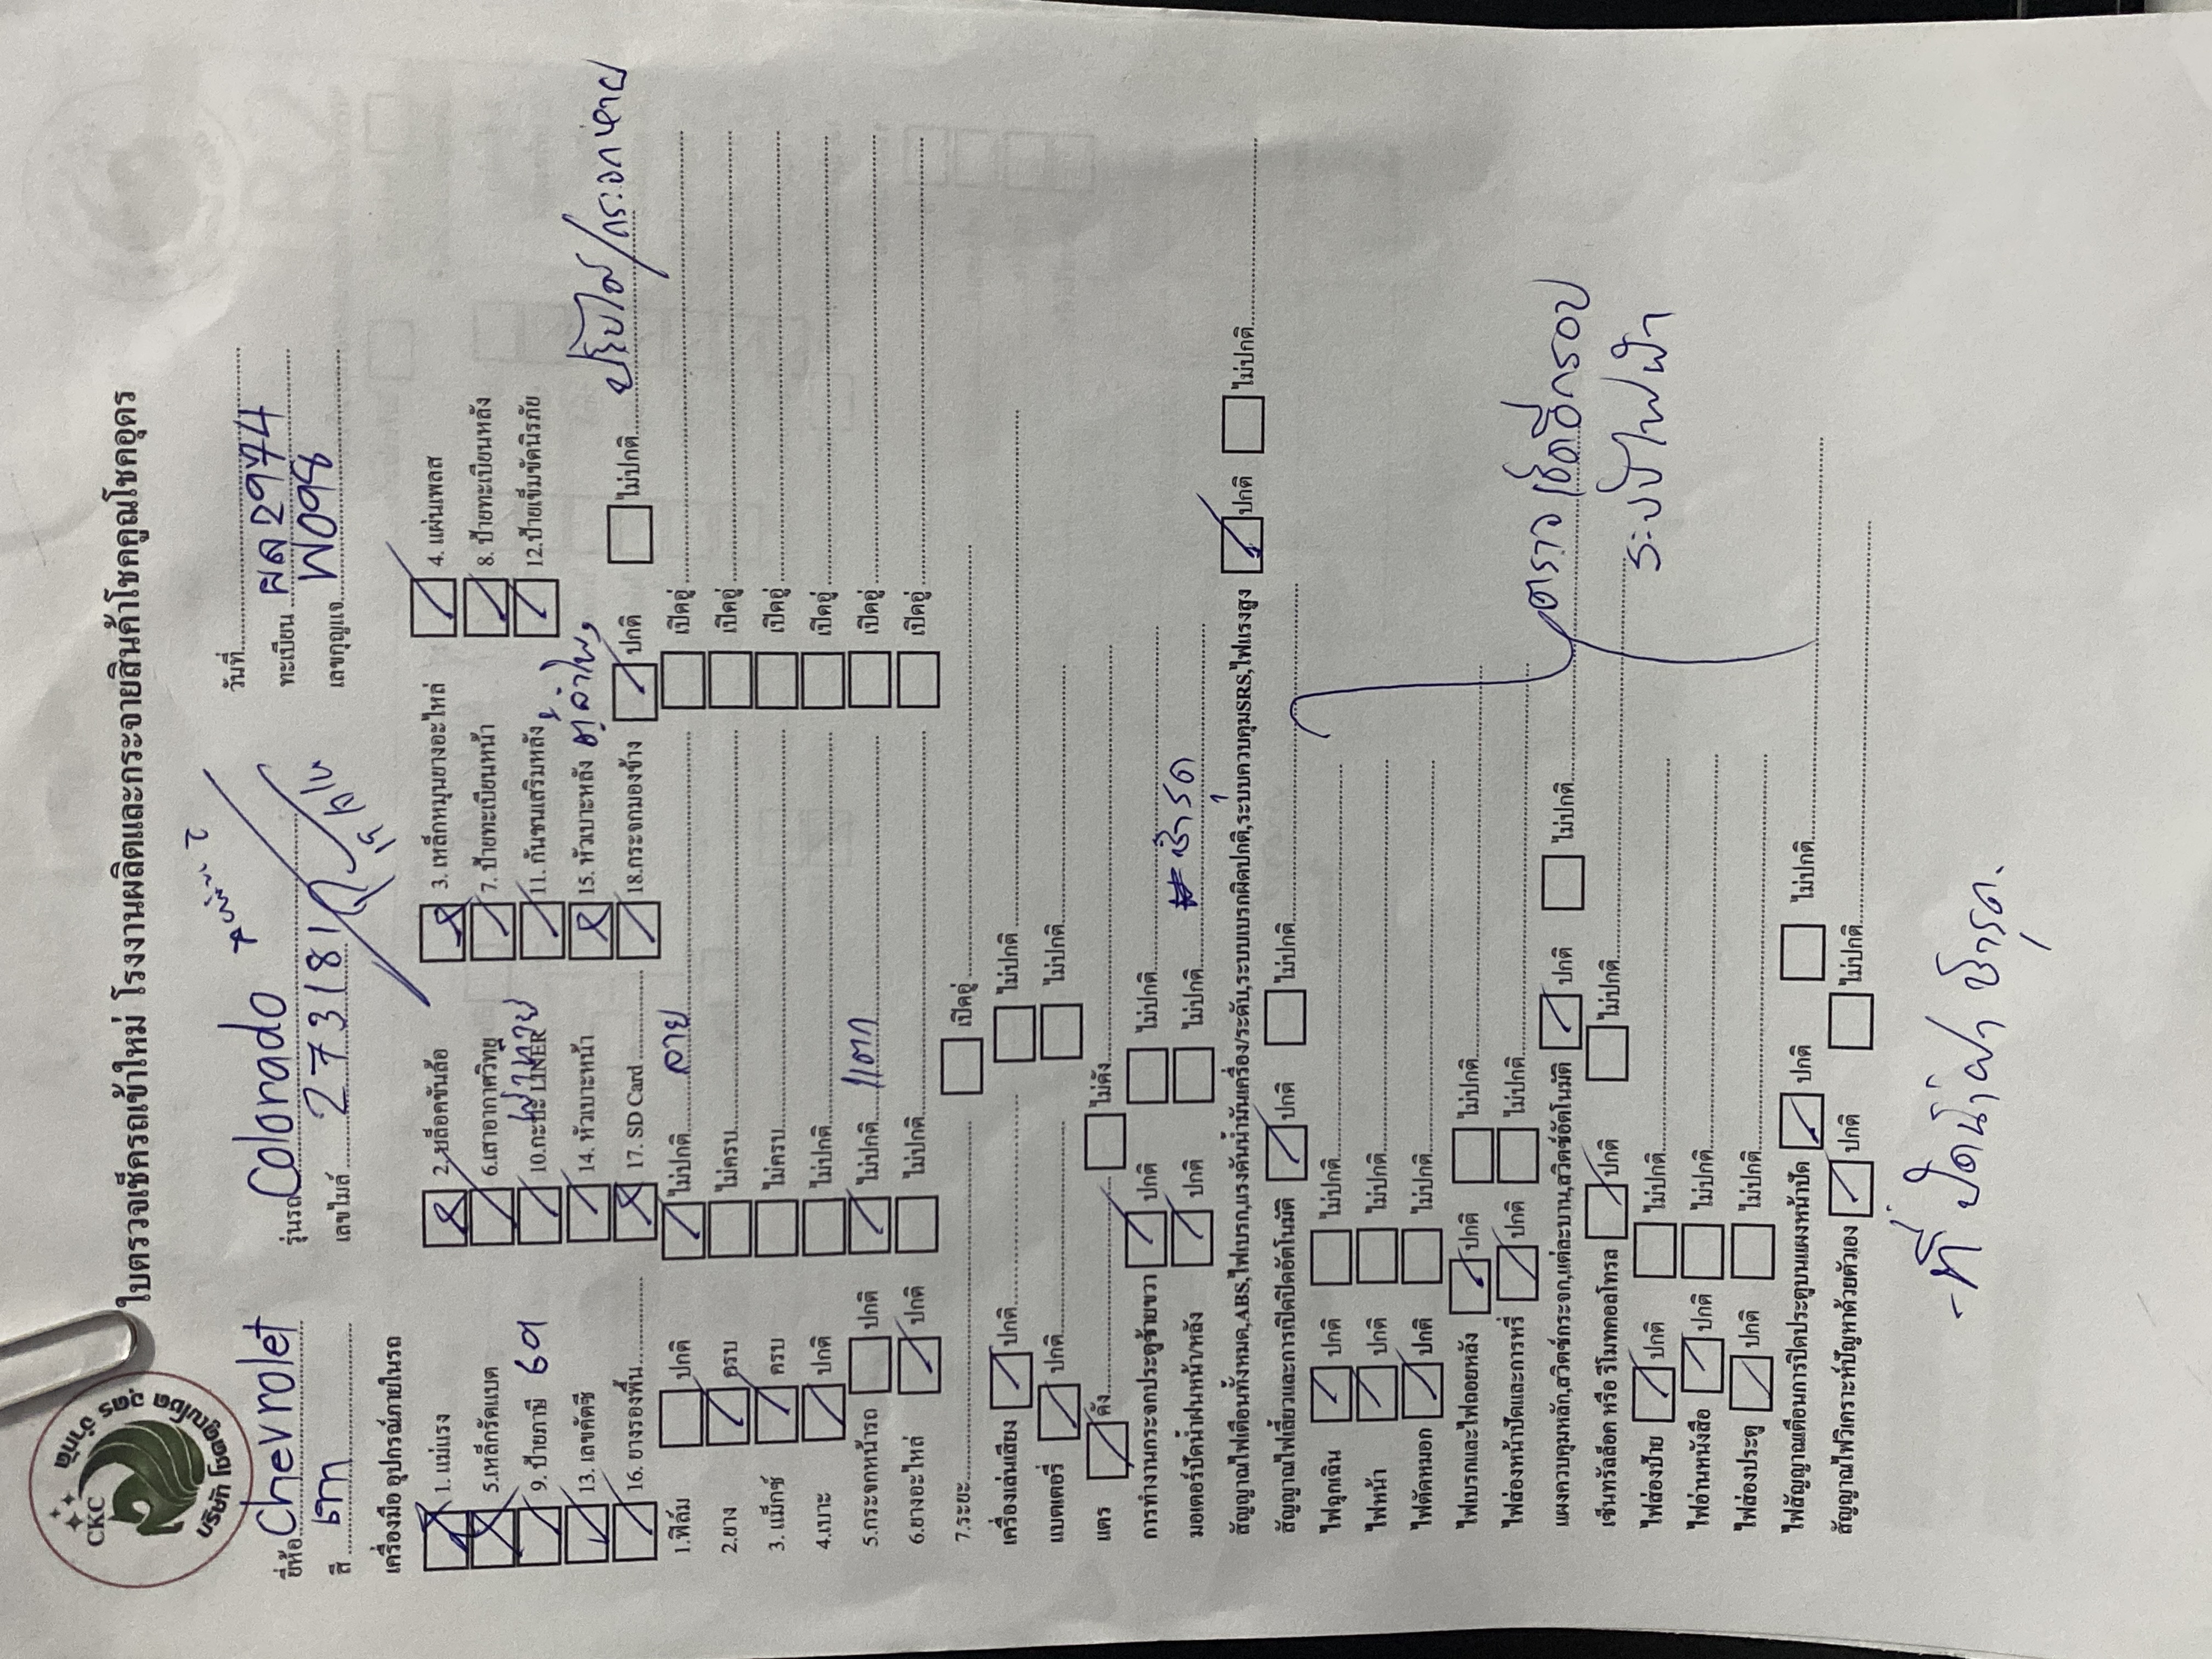 CKC
บริษัท โชคคูณโชค อุดร จำกัด
ใบตรวจเช็ครถเข้าใหม่ โรงงานผลิตและกระจายสินค้าโชคคูณโชคอุดร
วันที่
ยี่ห้อ Chevrolet รุ่นรถ Colorado ทะเบียน ผล 2974
สี เทา เลขไมล์ 273181 เลขกุญแจ W098
เครื่องมือ อุปกรณ์ภายในรถ
1. แม่แรง 2. บล็อคขันล้อ 3. เหล็กหมุนยางอะไหล่ 4. แผ่นเพลส
5.เหล็กรัดแบต 6.เสาอากาศวิทยุ 7. ป้ายทะเบียนหน้า 8. ป้ายทะเบียนหลัง
9. ป้ายภาษี 69 10.กะบะ LINER 11. กันชนเสริมหลัง 12.ป้ายเข็มขัดนิรภัย
13. เลขคัตซี 14. หัวเบาะหน้า 15. หัวเบาะหลัง
16. ยางรองพื้น 17. SD Card 18.กระจกมองข้าง ปกติ ไม่ปกติ
1.ฟิล์ม ปกติ ไม่ปกติ ลาย เปิดอู่
2.ยาง ครบ ไม่ครบ เปิดอู่
3. แม็กซ์ ครบ ไม่ครบ เปิดอู่
4.เบาะ ปกติ ไม่ปกติ เปิดอู่
5.กระจกหน้ารถ ปกติ ไม่ปกติ แตก เปิดอู่
6.ยางอะไหล่ ปกติ ไม่ปกติ เปิดอู่
7.ระยะ เปิดอู่
เครื่องเล่นเสียง ปกติ ไม่ปกติ
แบตเตอรี่ ปกติ ไม่ปกติ
แตร ดัง ไม่ดัง
การทำงานกระจกประตูซ้ายขวา ปกติ ไม่ปกติ
มอเตอร์ปัดน้ำฝนหน้า/หลัง ปกติ ไม่ปกติ ชำรุด
สัญญาณไฟเตือนทั้งหมด,ABS,ไฟเบรก,แรงดันน้ำมันเครื่อง/ระดับ,ระบบเบรกผิดปกติ,ระบบควบคุมSRS,ไฟแรงสูง ปกติ ไม่ปกติ
สัญญาณไฟเลี้ยวและการเปิดปิดอัตโนมัติ ปกติ ไม่ปกติ
ไฟฉุกเฉิน ปกติ ไม่ปกติ
ไฟหน้า ปกติ ไม่ปกติ
ไฟตัดหมอก ปกติ ไม่ปกติ
ไฟเบรกและไฟถอยหลัง ปกติ ไม่ปกติ
ไฟส่องหน้าปัดและการหรี่ ปกติ ไม่ปกติ
ตรวจเช็คอีกรอบ
แผงควบคุมหลัก,สวิตช์กระจก,แต่ละบาน,สวิตช์อัตโนมัติ ปกติ ไม่ปกติ
ระบบไฟฟ้า
เซ็นทรัลล็อก หรือ รีโมทคอลโทรล ปกติ ไม่ปกติ
ไฟส่องป้าย ปกติ ไม่ปกติ
ไฟอ่านหนังสือ ปกติ ไม่ปกติ
ไฟส่องประตู ปกติ ไม่ปกติ
ไฟสัญญาณเตือนการปิดประตูบนแผงหน้าปัด ปกติ ไม่ปกติ
สัญญาณไฟวิเคราะห์ปัญหาด้วยตัวเอง ปกติ ไม่ปกติ
- ที่ปัดน้ำฝน ชำรุด.